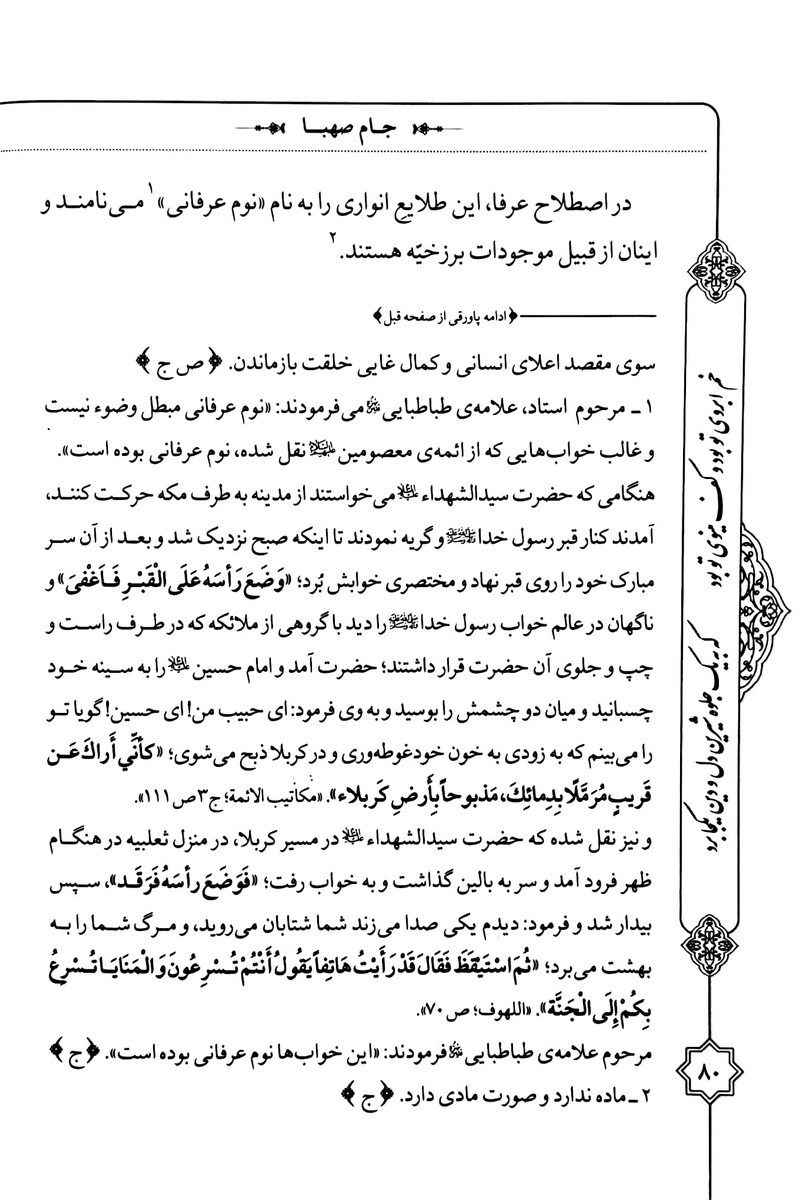 جـام صهبـا
در اصطلاح عرفا، این طلایعِ انواری را به نام «نوم عرفانی»۱ می‌نامند و
اینان از قبیل موجودات برزخیّه هستند.۲
﴿ادامه پاورقی از صفحه قبل﴾
سوی مقصد اعلای انسانی و کمال غایی خلقت بازماندن. ﴿ ص ج ﴾
۱ ـ مرحوم استاد، علامه‌ی طباطبایی ﷫ می‌فرمودند: «نوم عرفانی مبطل وضوء نیست
و غالب خواب‌هایی که از ائمه‌ی معصومین علیهم‌السلام نقل شده، نوم عرفانی بوده است».
هنگامی که حضرت سیدالشهداء علیه‌السلام می‌خواستند از مدینه به طرف مکه حرکت کنند،
آمدند کنار قبر رسول خدا ﷺ و گریه نمودند تا اینکه صبح نزدیک شد و بعد از آن سر
مبارک خود را روی قبر نهاد و مختصری خوابش بُرد؛ «وَضَعَ رَأسَهُ عَلَی الْقَبْرِ فَـأَغْفیٰ» و
ناگهان در عالم خواب رسول خدا ﷺ را دید با گروهی از ملائکه که در طرف راست و
چپ و جلوی آن حضرت قرار داشتند؛ حضرت آمد و امام حسین علیه‌السلام را به سینه خود
چسبانید و میان دو چشمش را بوسید و به وی فرمود: ای حبیب من! ای حسین! گویا تو
را می‌بینم که به زودی به خون خود غوطه‌وری و در کربلا ذبح می‌شوی؛ «کأنّي أَراكَ عَـن
قَریبٍ مُرَمَّلًا بِدِمائِكَ، مَذبوحاً بِأَرضِ کَربلاء». «مکاتیب الائمة؛ ج۳ ص ۱۱۱».
و نیز نقل شده که حضرت سیدالشهداء علیه‌السلام در مسیر کربلا، در منزل ثعلبیه در هنگام
ظهر فرود آمد و سر به بالین گذاشت و به خواب رفت؛ «فَوَضَعَ رأسَهُ فَرَقَـد»، سپس
بیدار شد و فرمود: دیدم یکی صدا می‌زند شما شتابان می‌روید، و مرگ شما را به
بهشت می‌برد؛ «ثُمَ اسْتَیْقَظَ فَقالَ قَدْ رَأَیْتُ هَاتِفاً یَقُولُ أَنْتُمْ تُسْرِعُونَ وَ الْمَنَایَـا تُـسْرِعُ
بِکُمْ إِلَی الْجَنَّة». «اللهوف؛ ص ۷۰».
مرحوم علامه‌ی طباطبایی ﷫ فرمودند: «این خواب‌ها نوم عرفانی بوده است». ﴿ ج ﴾
۲ ـ ماده ندارد و صورت مادی دارد. ﴿ ج ﴾
خم ابروی تو بود و کف مینوی تو بود
که به یک جلوه شیرین دل و دین یکجا برد
۸۰